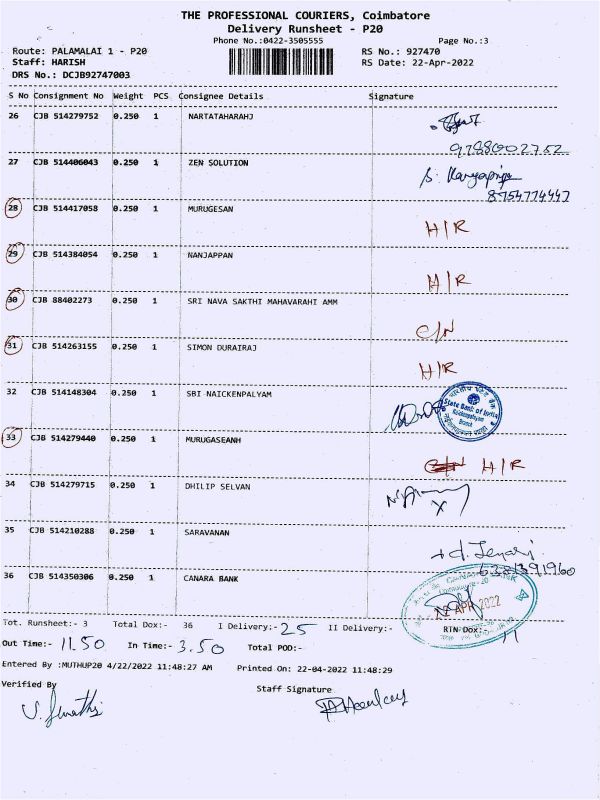 THE PROFESSIONAL COURIERS, Coimbatore
Delivery Runsheet - P20
Phone No.:0422-3505555
Page No.:3
Route: PALAMALAI 1 - P20
RS No.: 927470
Staff: HARISH
RS Date: 22-Apr-2022
DRS No.: DCJB92747003
S No Consignment No Weight PCS Consignee Details Signature
26 CJB 514279752 0.250 1 NARTATAHARAHJ
9788002752
27 CJB 514406043 0.250 1 ZEN SOLUTION
8754774447
28 CJB 514417058 0.250 1 MURUGESAN H/R
29 CJB 514384054 0.250 1 NANJAPPAN H/R
30 CJB 88402273 0.250 1 SRI NAVA SAKTHI MAHAVARAHI AMM C/N
31 CJB 514263155 0.250 1 SIMON DURAIRAJ H/R
32 CJB 514148304 0.250 1 SBI NAICKENPALYAM
State Bank of India
Branch
33 CJB 514279440 0.250 1 MURUGASEANH H/R
34 CJB 514279715 0.250 1 DHILIP SELVAN
X
35 CJB 514210288 0.250 1 SARAVANAN
6381391960
36 CJB 514350306 0.250 1 CANARA BANK
APR 2022
Tot. Runsheet:- 3 Total Dox:- 36 I Delivery:- 25 II Delivery:- RTN Dox:- 11
Out Time:- 11.50 In Time:- 3.50 Total POD:-
Entered By :MUTHUP20 4/22/2022 11:48:27 AM Printed On: 22-04-2022 11:48:29
Verified By Staff Signature